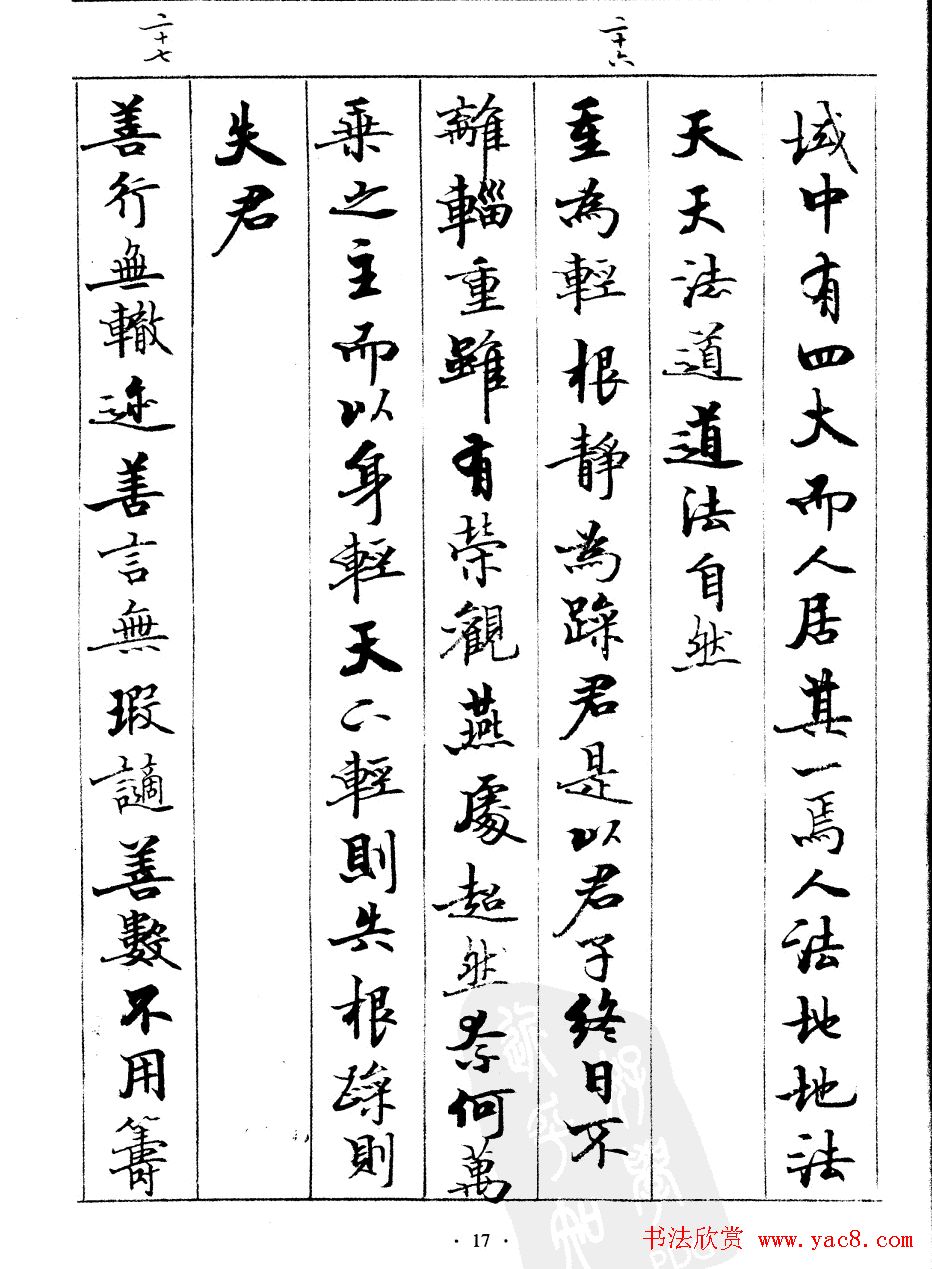 二十六
域中有四大而人居其一焉人法地地法
天天法道道法自然
重為輕根靜為躁君是以君子終日不
離輜重雖有榮觀燕處超然奈何萬
乘之主而以身輕天下輕則失根躁則
失君
二十七
善行無轍迹善言無瑕謫善數不用籌
· 17 ·
书法欣赏 www.yac8.com